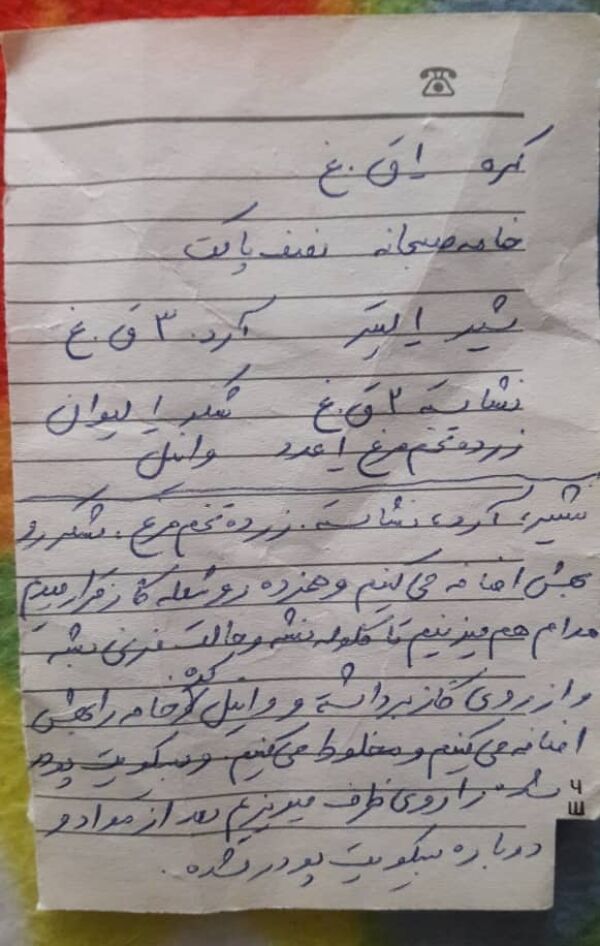 کره ۱ ق.غ
خامه صبحانه نصف پاکت
شیر ۱ لیتر آرد. ۳ ق.غ
نشاسته ۲ ق.غ شکر ۱ لیوان
زرده تخم مرغ ۱ عدد وانیل
شیر، آرد، نشاسته. زرده تخم مرغ. شکر رو
بهش اضافه می‌کنیم و همزده رو شعله گاز قرار میدیم
مدام هم میزنیم تا گلوله نشه و حالت فرنی بشه
و از روی گاز برداشته و وانیل کره خامه را بهش
اضافه می‌کنیم و مخلوط می‌کنیم. و بیسکویت پودر
شده را روی ظرف میریزیم بعد از مواد و
دوباره بیسکویت پودر شده.